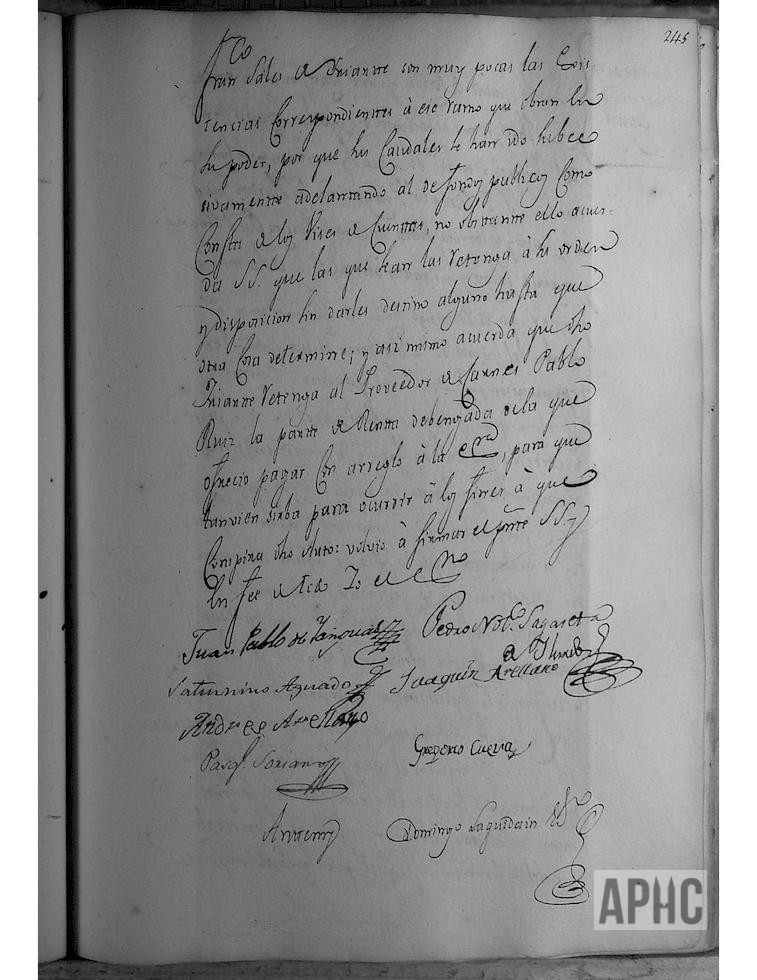 245
Fran.co Sales de Iriarte son muy pocas las Exis-
tencias Correspondientes à ese ramo que obran en
su poder, por que sus Caudales se han ido subce
sivamente adelantando al de fondos publicos Como
Consta de los Vises de Cuentas, no obstante ello acuer-
da SS. que las que sean las retenga à su orden
y disposicion sin darles destino alguno hasta que
otra Cosa determine; y asi mimo acuerda que dho
Iriarte retenga al Proveedor de Carnes Pablo
Ruiz la parte de Renta debengada de la que
ofrecio pagar Con arreglo à la
, para que
tanvien sirba para ocurrir à los fines à que
Conspira dho Auto: volvio à firmar el pnte SS.
en fee de todo Yo el Ess.no
Juan Pablo de
Pedro Nol.o Sagaseta
de Ilurdoz
Saturnino Aguado
Joaquin Arellano
Andres Arellano
Pasql. Soriano
Gregorio Cuerva
Antemi
Domingo Laguidain Es.no
APHC